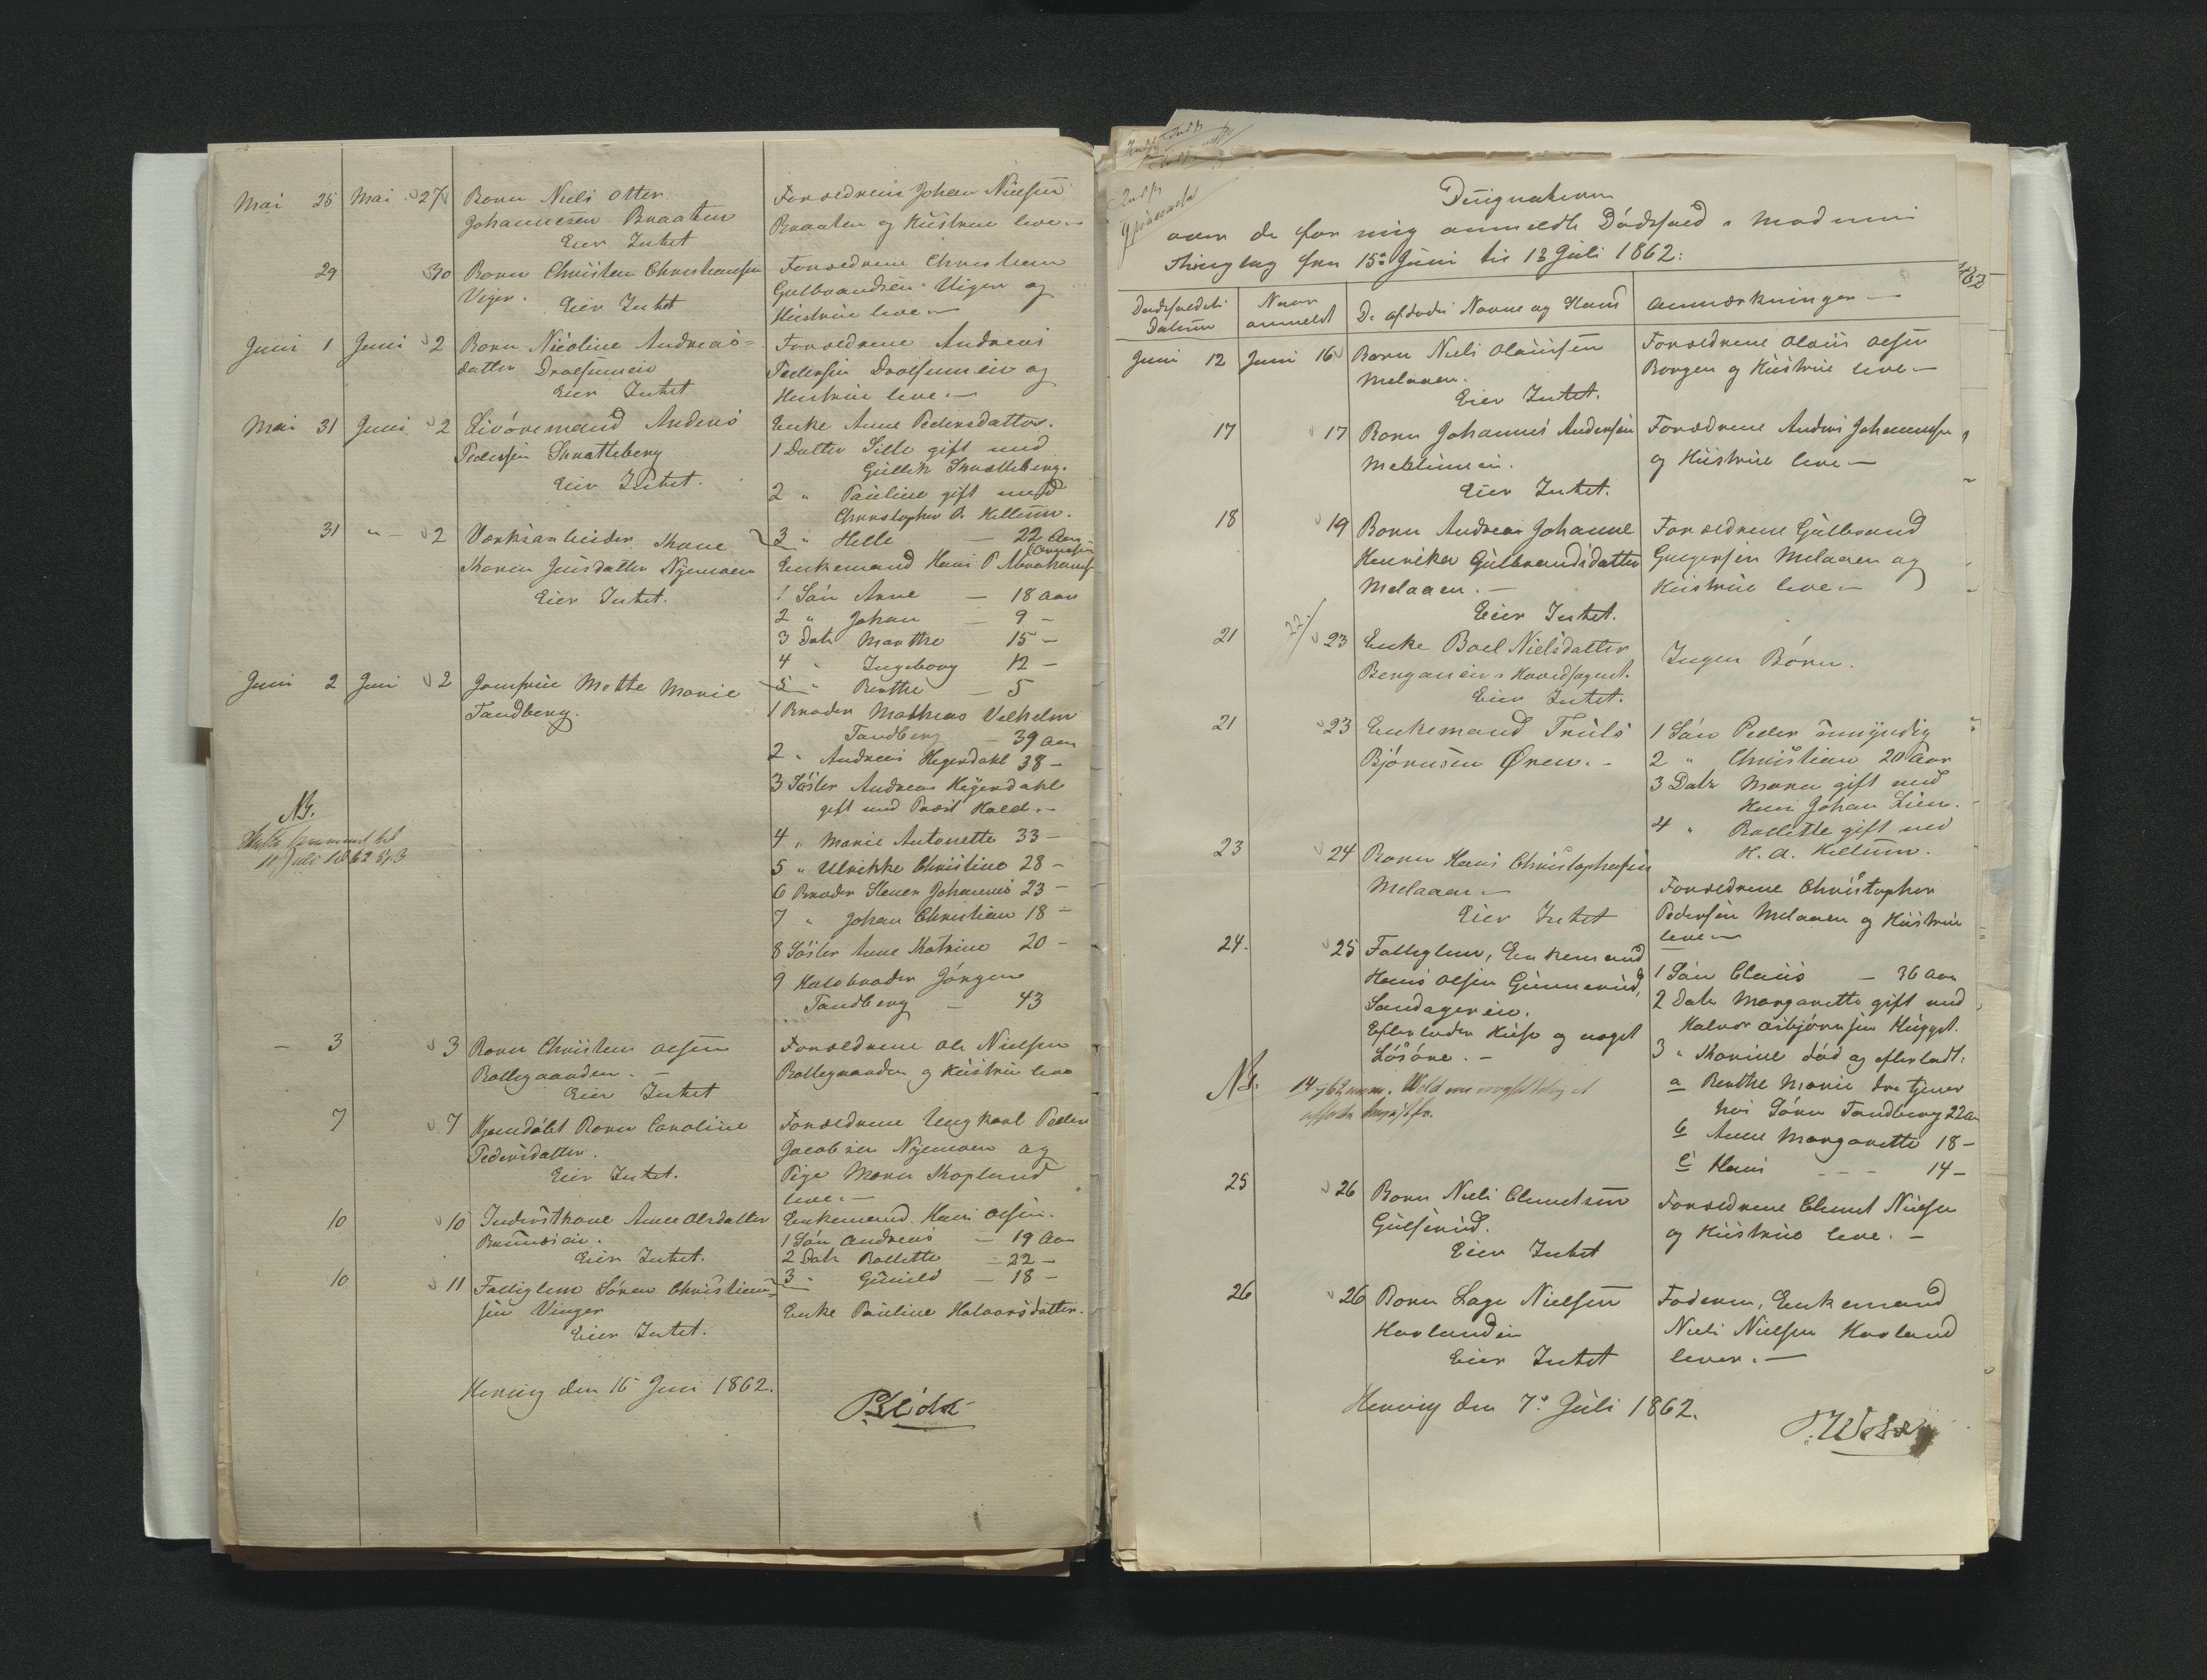 Mai 25 Mai 27 Barn Niels Otter
Johannesen Braaten
Eier Intet
Forældrene Johan Nielsen
Braaten og Hustrue leve
29 30 Barn Christen Christiansen
Viger.
Eier Intet
Forældrene Christian
Gulbrandsen Viger og
Hustrue leve
Juni 1 Juni 2 Barn Nicoline Andreas=
datter
Eier Intet
Forældrene Andreas
Pedersen og
Hustrue leve.
Mai 31 Juni 2 Livöremand Anders
Pedersen Skratteberg
Eier Intet.
Enke Anne Pedersdatter.
1 Datter gift med
Gullik Skratteberg.
2 " Pauline gift med
Christopher A. Kellum.
3 " Helle — 22 Aar
31 " - 2 Værksarbeider Kone
Karen Jensdatter Nymoen
Eier Intet.
Enkemand Hans P. Abrahams
1 Sön Arne — 18 Aar
2 " Johan — 9 -
3 Datr Marthe 15 -
4 " Ingeborg 12 -
5 " Berthe — 5
Juni 2 Juni 2 Jomfrue Mette Marie
Tandberg.
1 Broder Mathias Velhelm
Tandberg — 39 Aar
2 " Andreas Hegerdahl 38 -
3 Söster Andrea Hegerdahl
gift med Præst Hald. -
4 " Marie Antonette 33 -
5 " Ulrikke Christine 28 -
6 Broder Steen Johannes 23 -
7 " Johan Christian 18 -
8 Söster Anne Katrine 20 -
9 Halvbroder Jörgen
Tandberg — 43
NB.
11 Juli 1862
- 3 3 Barn Christen Olsen
Rallegaarden. -
Eier Intet
Forældrene Ole Nielsen
Rallegaarden og Hustrue leve
7 7 Hjemdöbt Barn Caroline
Pedersdatter.
Eier Intet.
Forældrene Ungkarl Peder
Jacobsen Nymoen og
Pige Maren Kopland
leve. -
10 10 Inderstkone Anne Olsdatter
Eier Intet.
Enkemand Hans Olsen.
1 Sön Andreas — 19 Aar
2 Datr Rallette — 22 -
3 " Gunild — 18 -
10 11 Fattiglem Sören Christian=
sen Vinger
Eier Intet.
Enke Pauline Halvorsdatter.
Hervig den 16 Juni 1862.
Designation
over de for mig anmeldte Dödsfald i Modums
Thinglag fra 15de Juni til 13 Juli 1862:
Dödsfaldets
Datum
Naar
anmeldt
De afdödes Navne og Stand
Anmærkninger —
Juni 12 Juni 16 Barn Niels Olausen
Melaaen.
Eier Intet.
Forældrene Olaus Olsen
Borgen og Hustrue leve -
17 17 Barn Johannes Andersen
Eier Intet.
Forældrene Anders Johannesen
og Hustrue leve -
18 19 Barn Andrea Johanne
Henrikea Gulbrandsdatter
Melaaen. -
Eier Intet.
Forældrene Gulbrand
Gregersen Melaaen og
Hustrue leve -
21 22/ 23 Enke Boel Nielsdatter
Eier Intet.
Ingen Börn.
21 23 Enkemand Truls
Björnsen Øren. -
1 Sön Peder umyndig
2 " Christian 20 Aar
3 Datr Maren gift med
Hans Johan Lien.
4 " Rallette gift med
H. A. Kellum.
23 24 Barn Hans Christophersen
Melaaen -
Eier Intet
Forældrene Christopher
Pedersen Melaaen og Hustrue
leve -
24. 25 Fattiglem, Enkemand
Hans Olsen Gunnerud,
Sandagereie.
Efterlader Huse og noget
Lösöre. -
1 Sön Claus — 36 Aar
2 Datr Margarette gift med
Halvor Asbjörnsen Hugget.
3 " Karine död og efterladt:
a Berthe Marie der tjener
hos Sören Tandberg 22 Aar
b Anne Margarette 18 -
c Hans - - - 14 -
NB.
25 26 Barn Niels Clemetsen
Gulsrud.
Eier Intet
Forældrene Clemet Nielsen
og Hustrue leve. -
26 26 Barn Lage Nielsen
Eier Intet
Faderen, Enkemand
Niels Nielsen Havland
lever. -
Hervig den 7de Juli 1862.